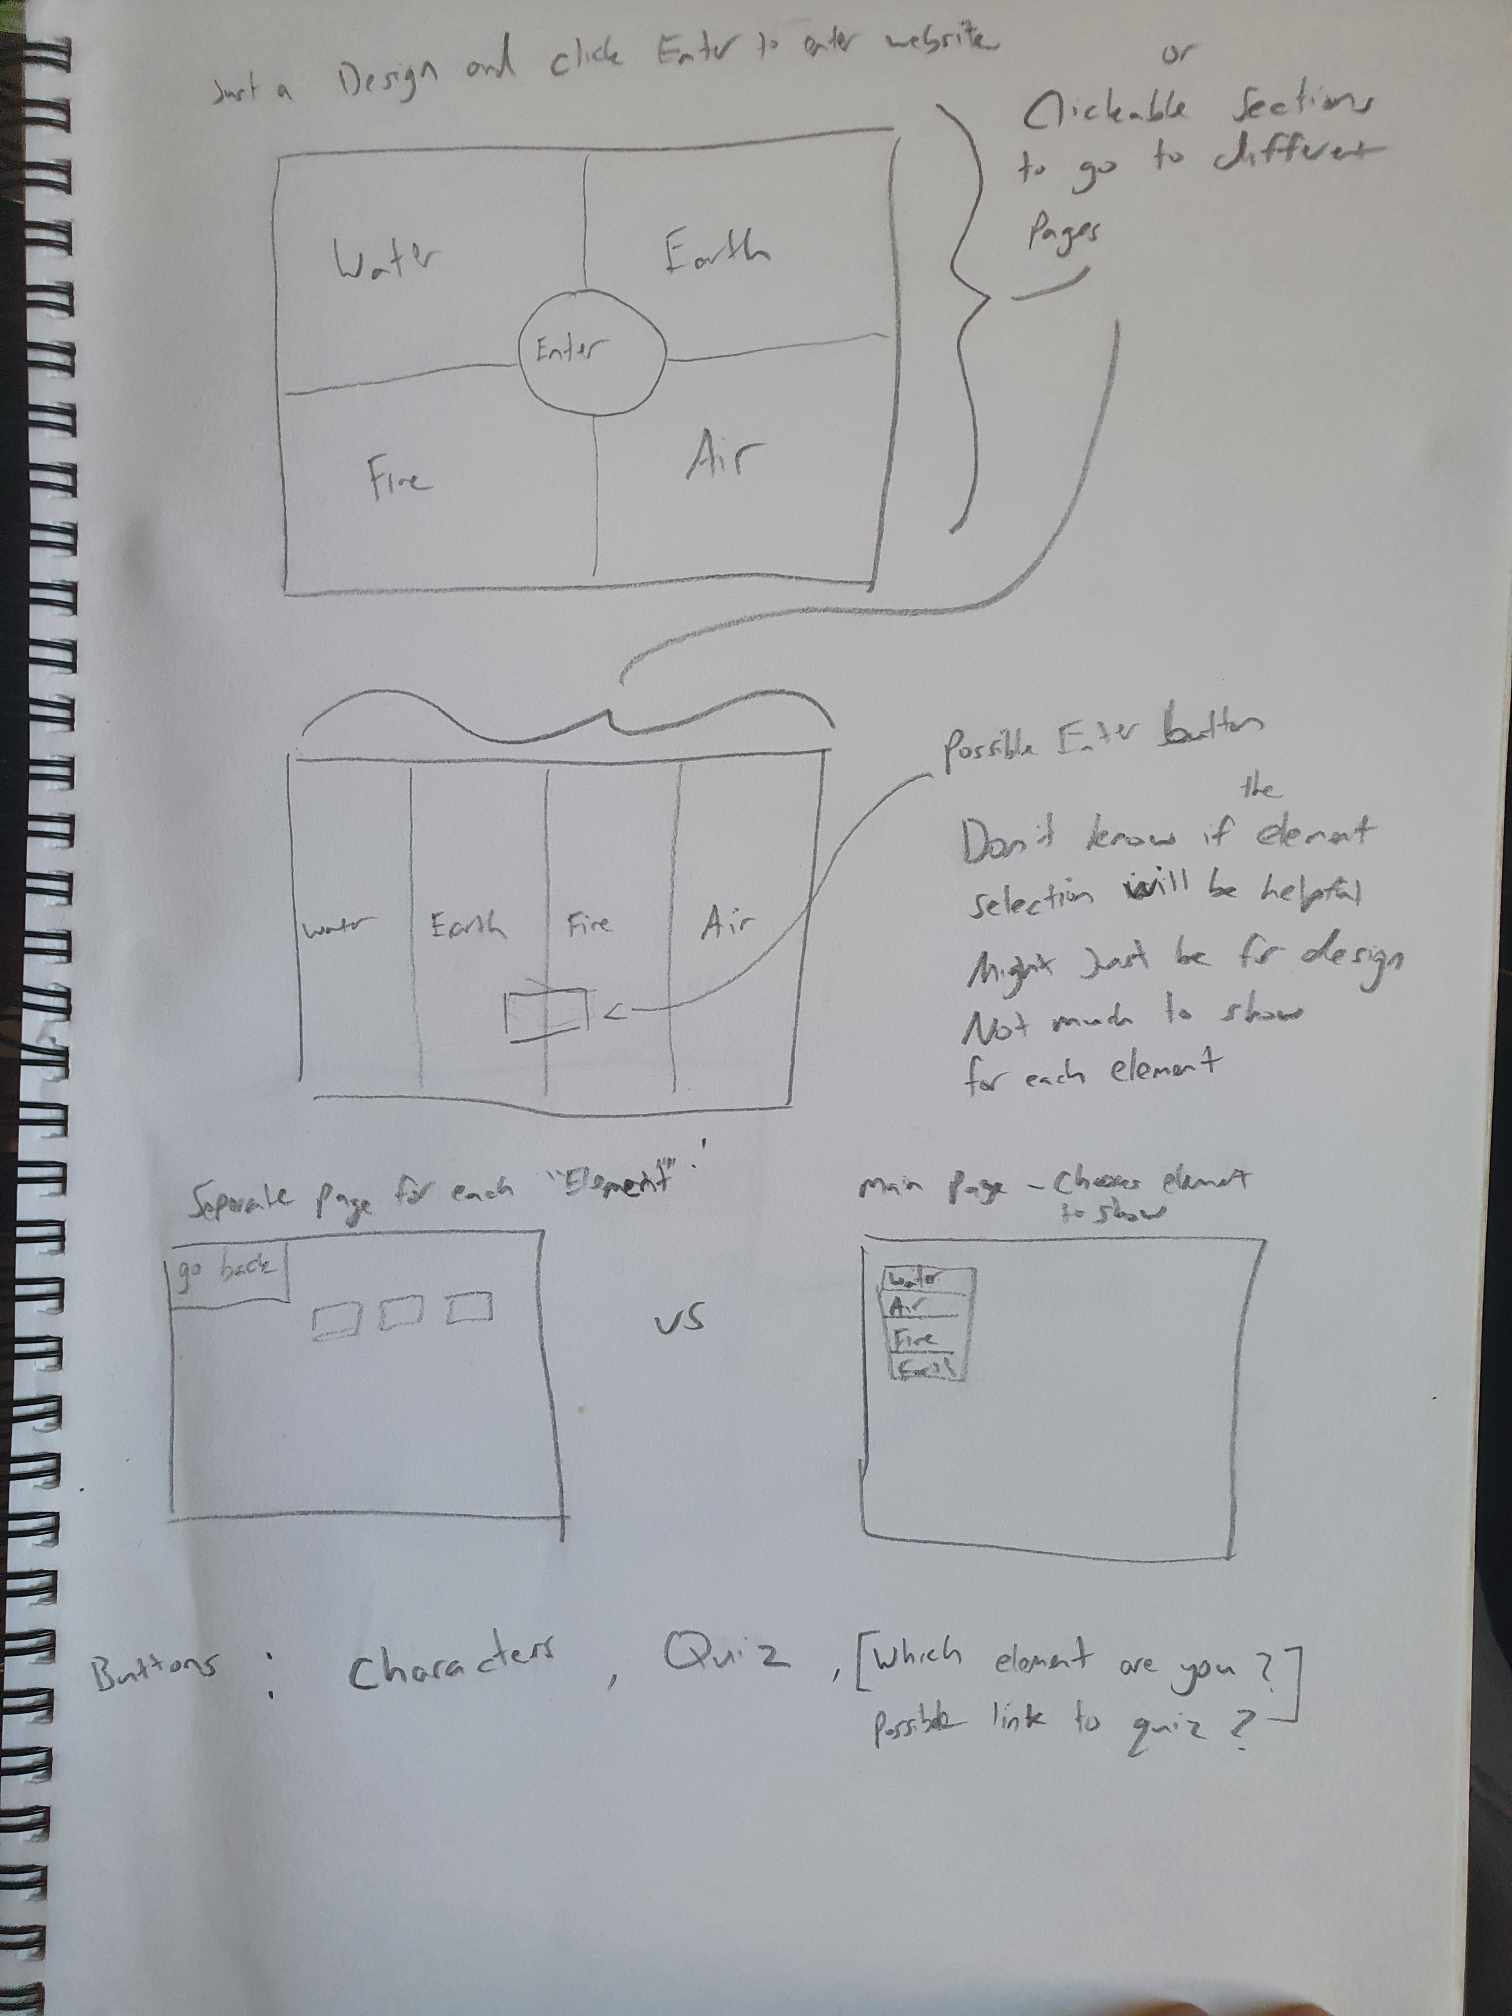 Just a Design and click Enter to enter website
or
Clickable Sections
to go to different
Pages
Water
Earth
Enter
Fire
Air
Possible Enter button
the
Don't know if element
selection will be helpful
Might Just be for design
Not much to show
for each element
Water
Earth
Fire
Air
Separate page for each "Element":
go back
vs
Main page - Choose element
to show
Water
Air
Fire
Earth
Buttons : Characters , Quiz , [Which element are you ?
Possible link to quiz ?]